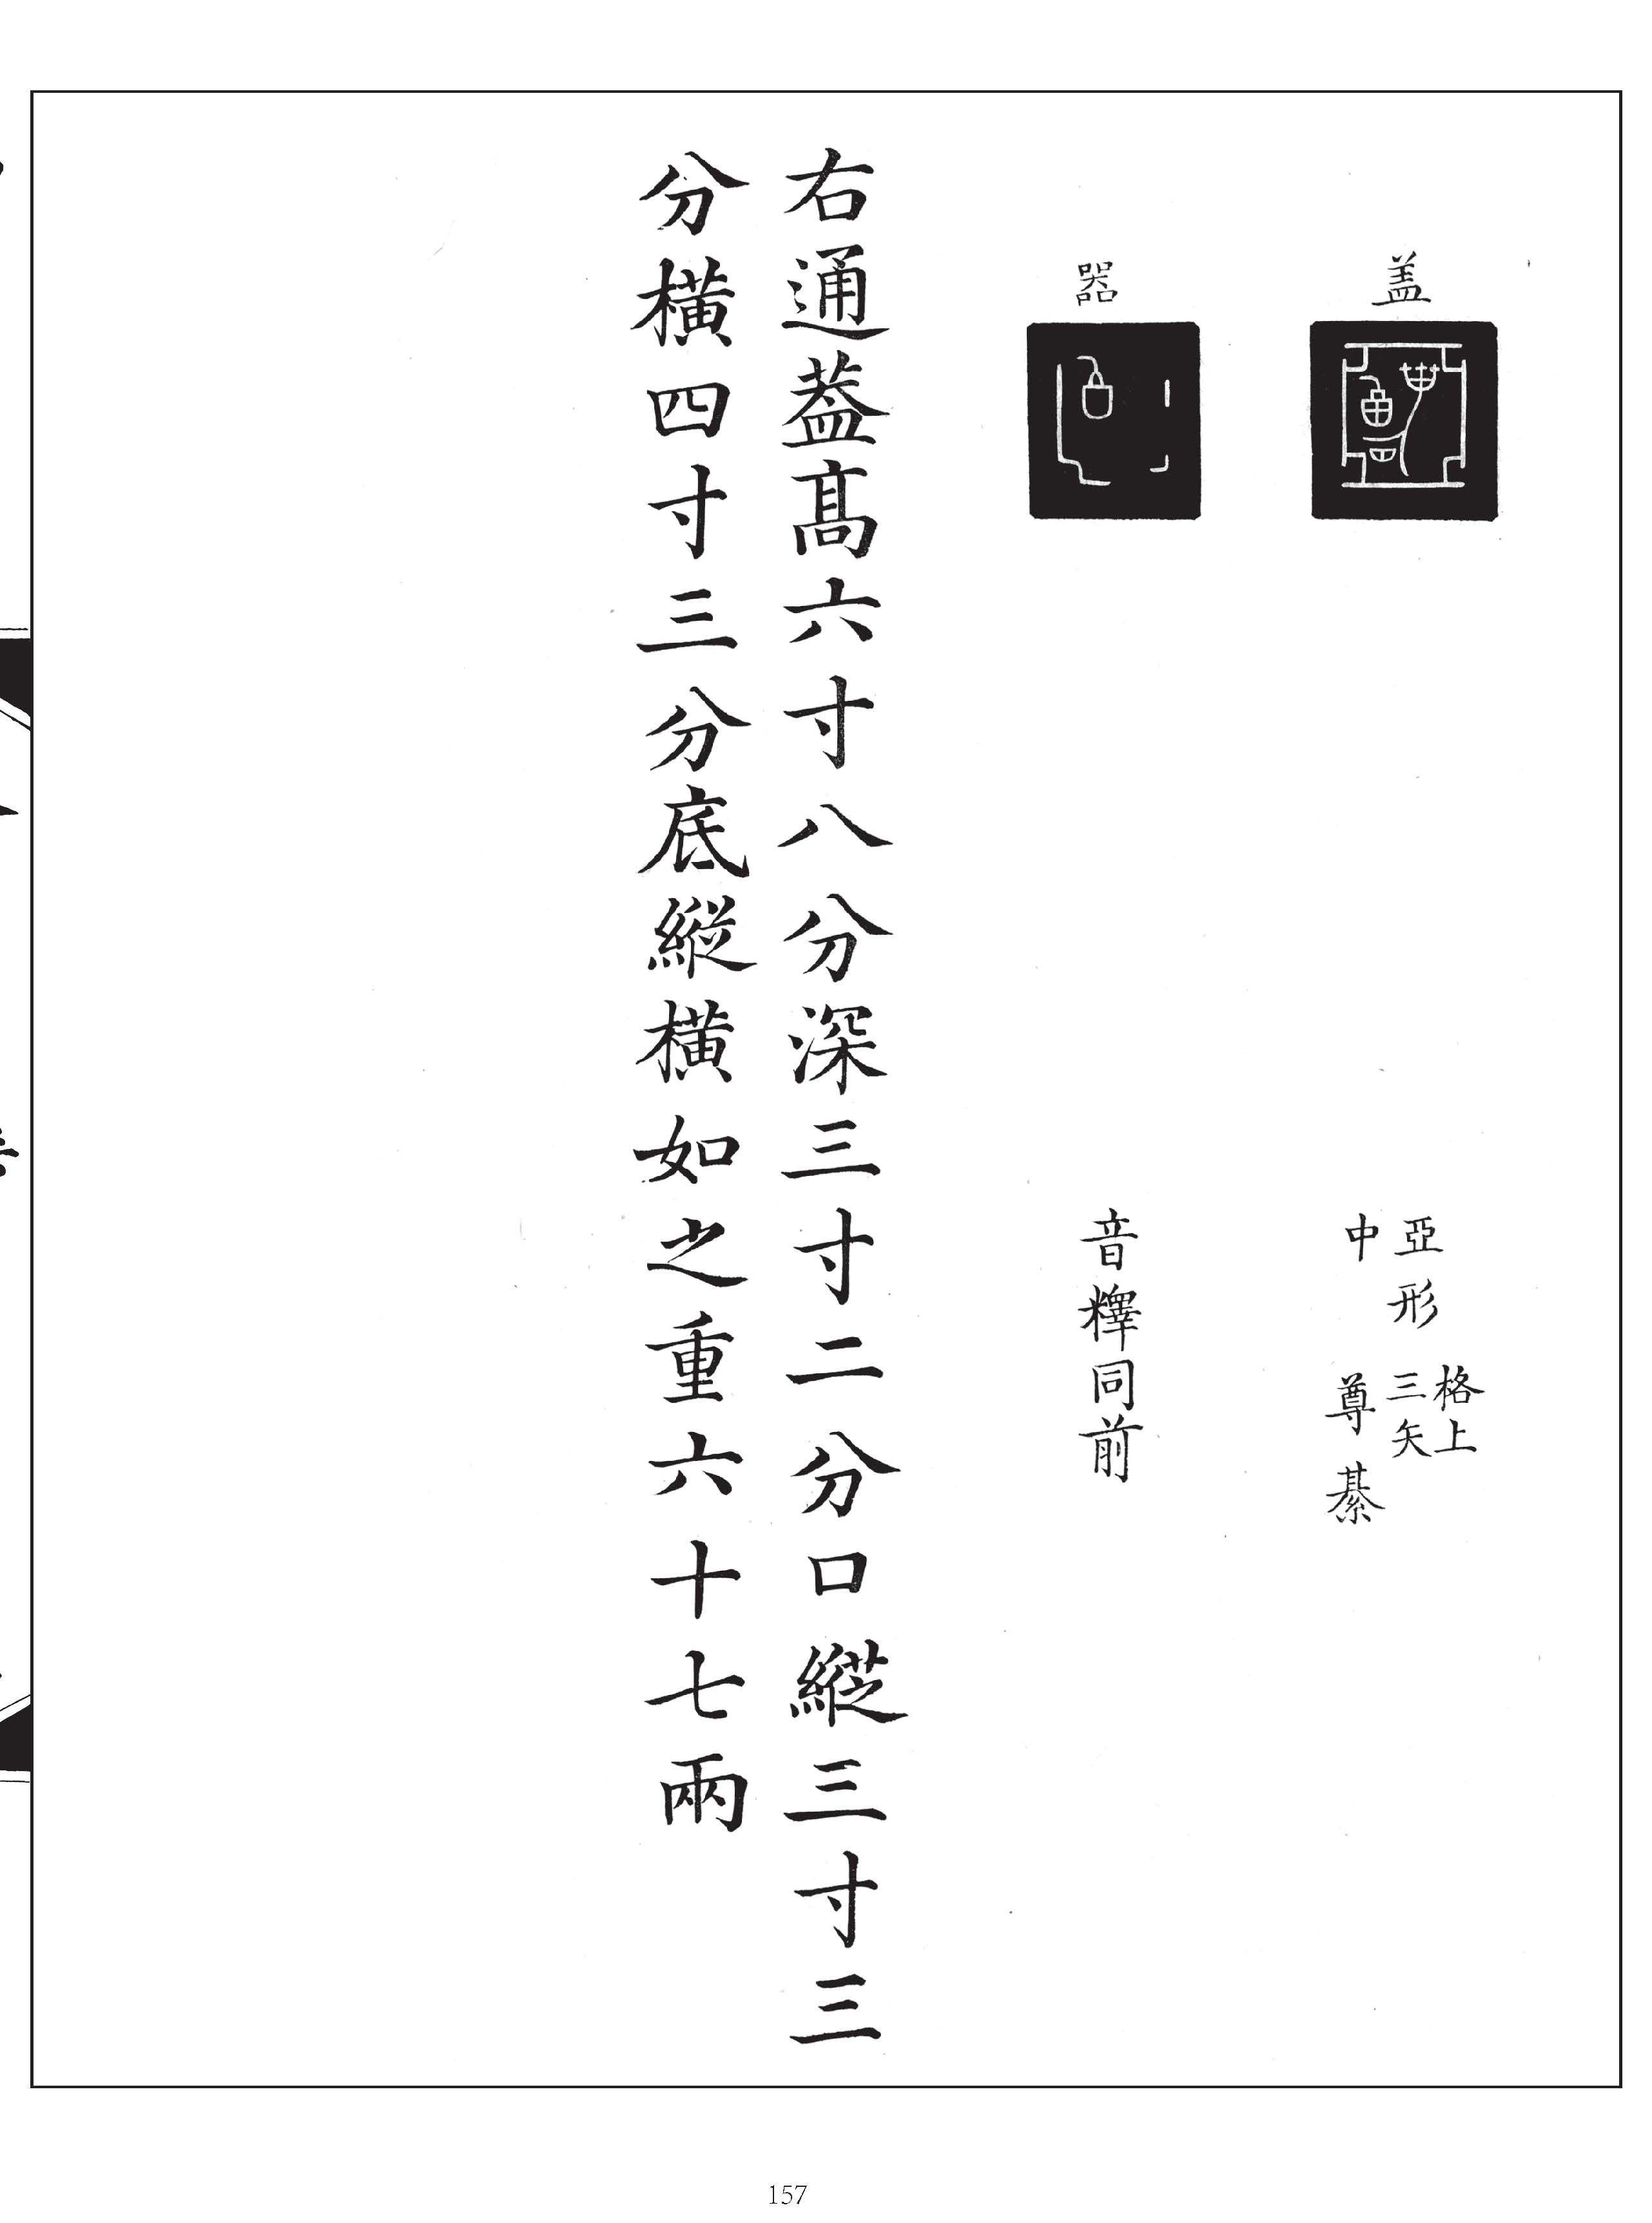 盖
亞形
格上
三矢
中
尊綦
器
音釋同前
右通蓋髙六寸八分深三寸二分口縱三寸三
分橫四寸三分底縱橫如之重六十七兩
157